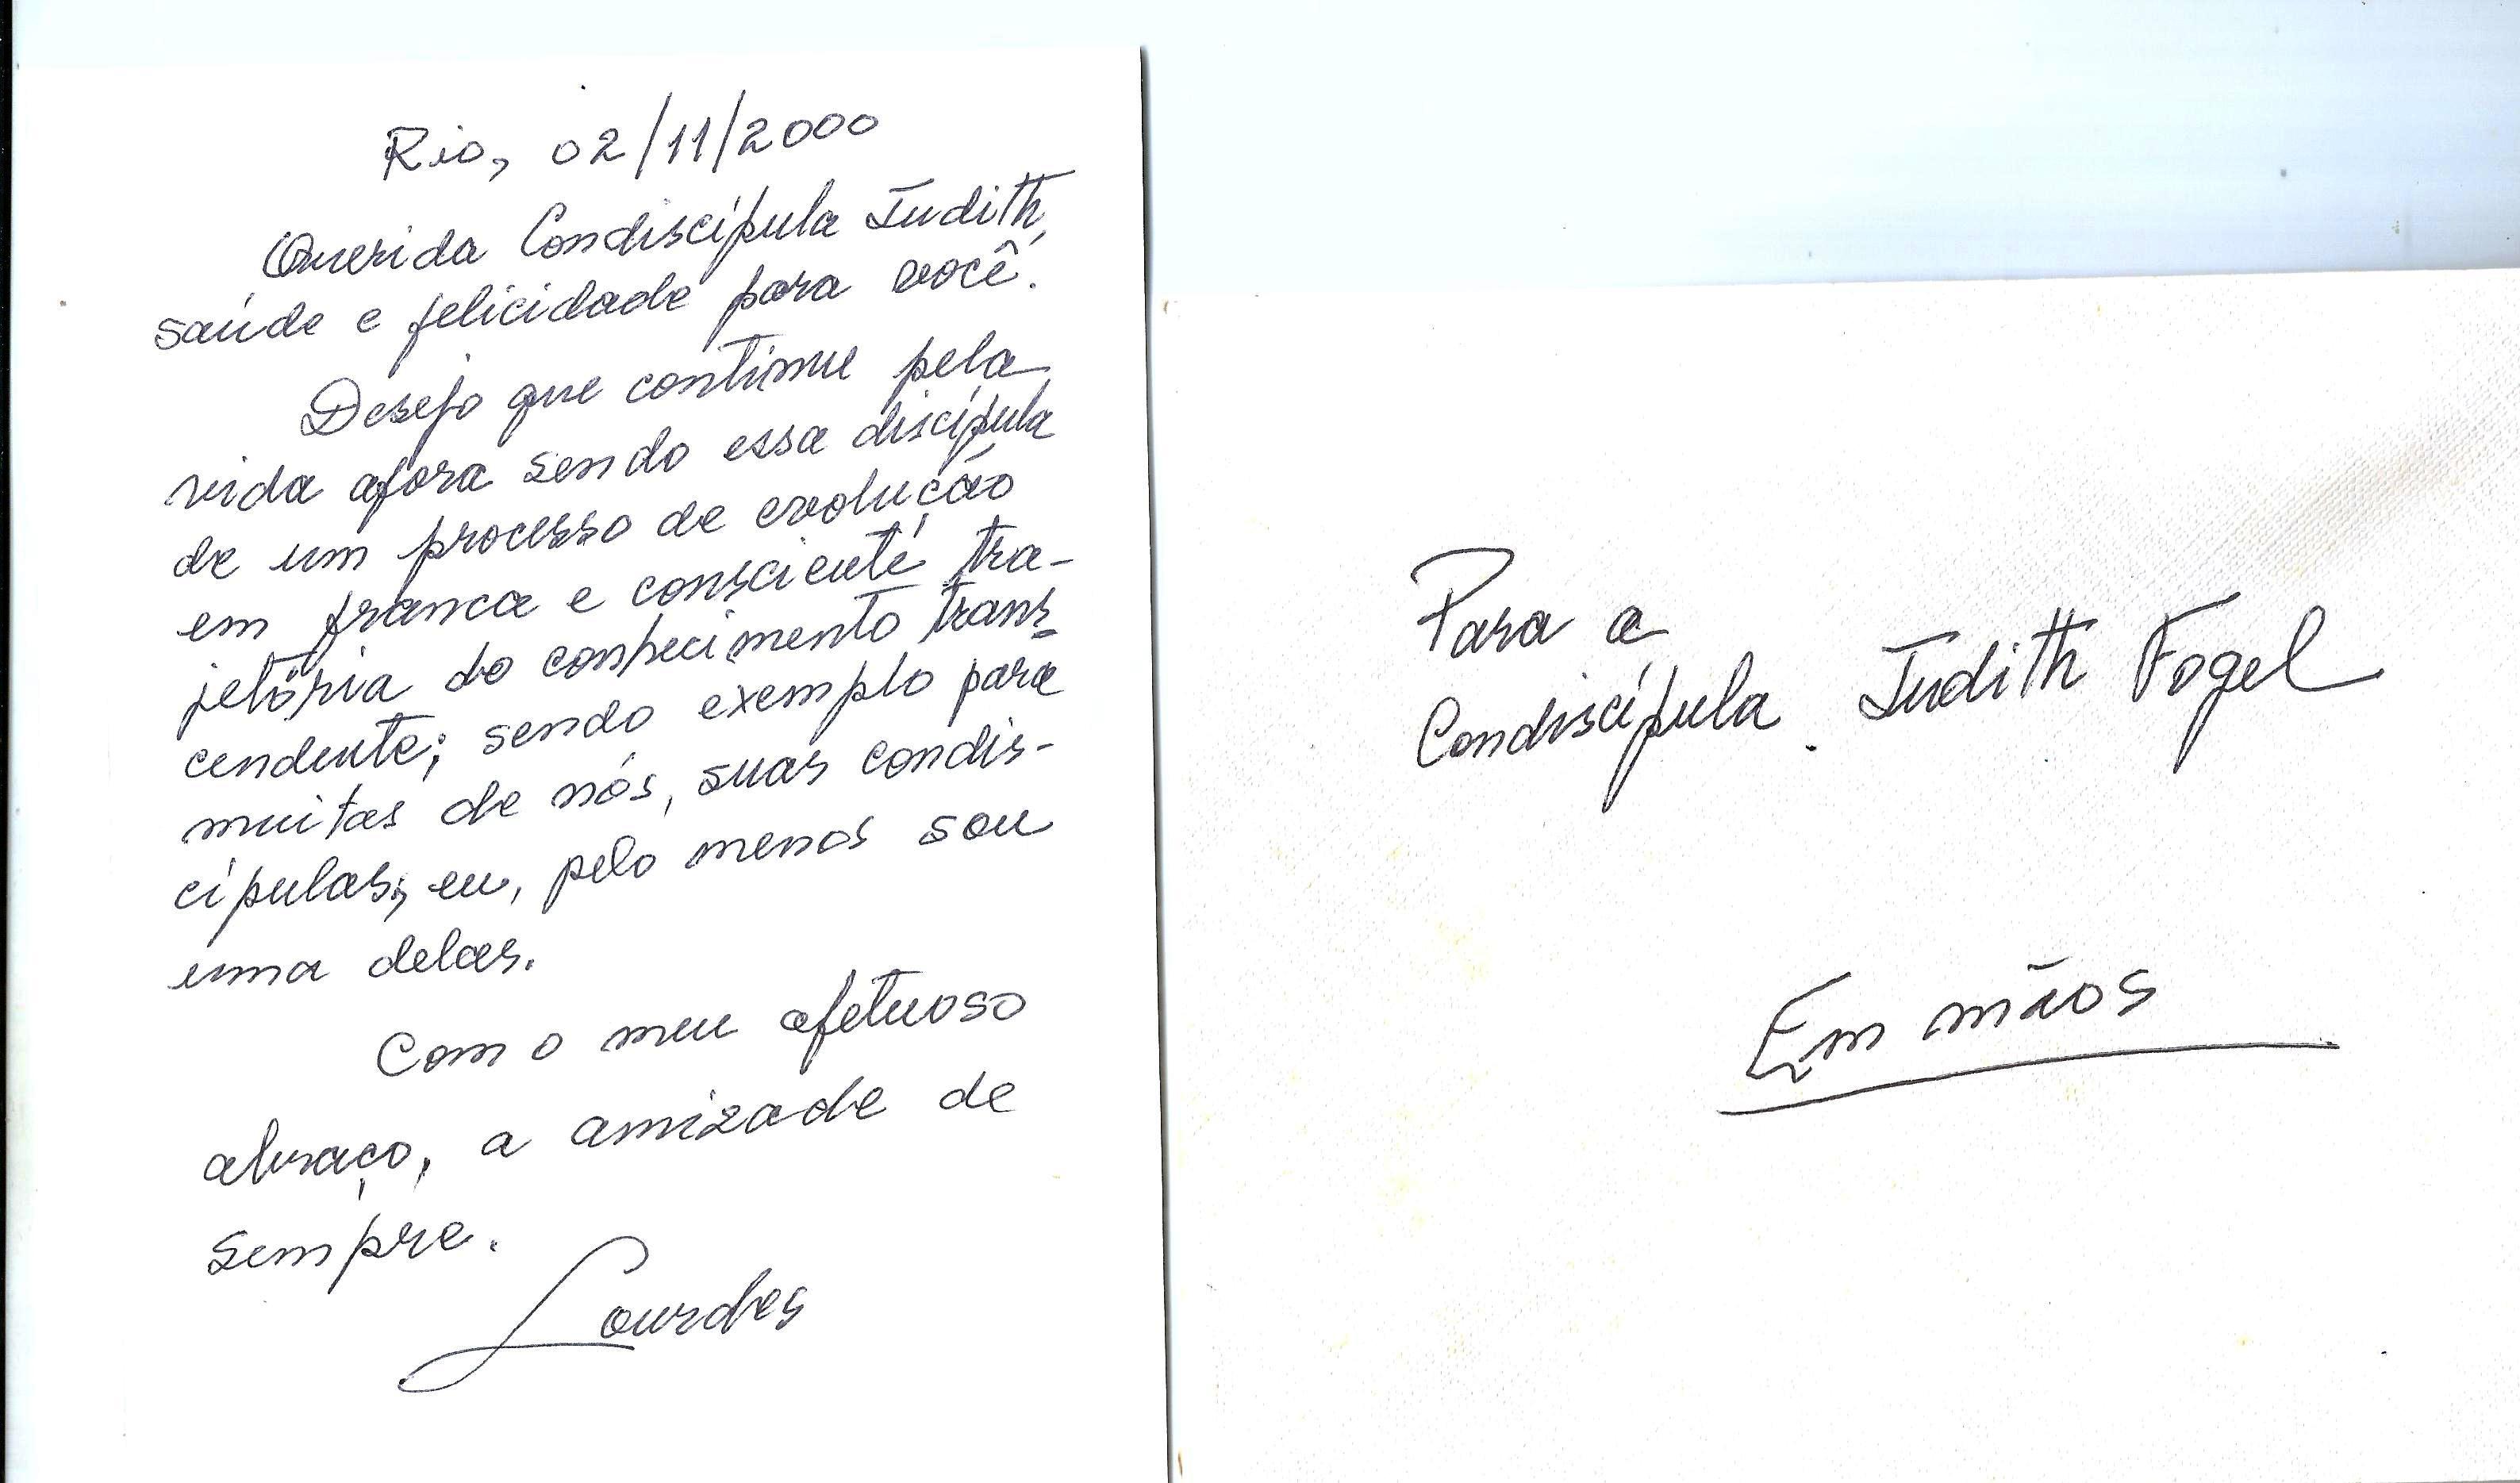 Rio, 02/11/2000
Querida Condiscípula Judith,
saúde e felicidade para você.
Desejo que continue pela
vida afora sendo essa discípula
de um processo de evolução
em franca e consciente tra-
jetória do conhecimento trans-
cendente; sendo exemplo para
muitas de nós, suas condis-
cípulas; eu, pelo menos sou
uma delas.
Com o meu afetuoso
abraço, a amizade de
sempre.
Lourdes
Para a
Condiscípula Judith Fogel
Em mãos